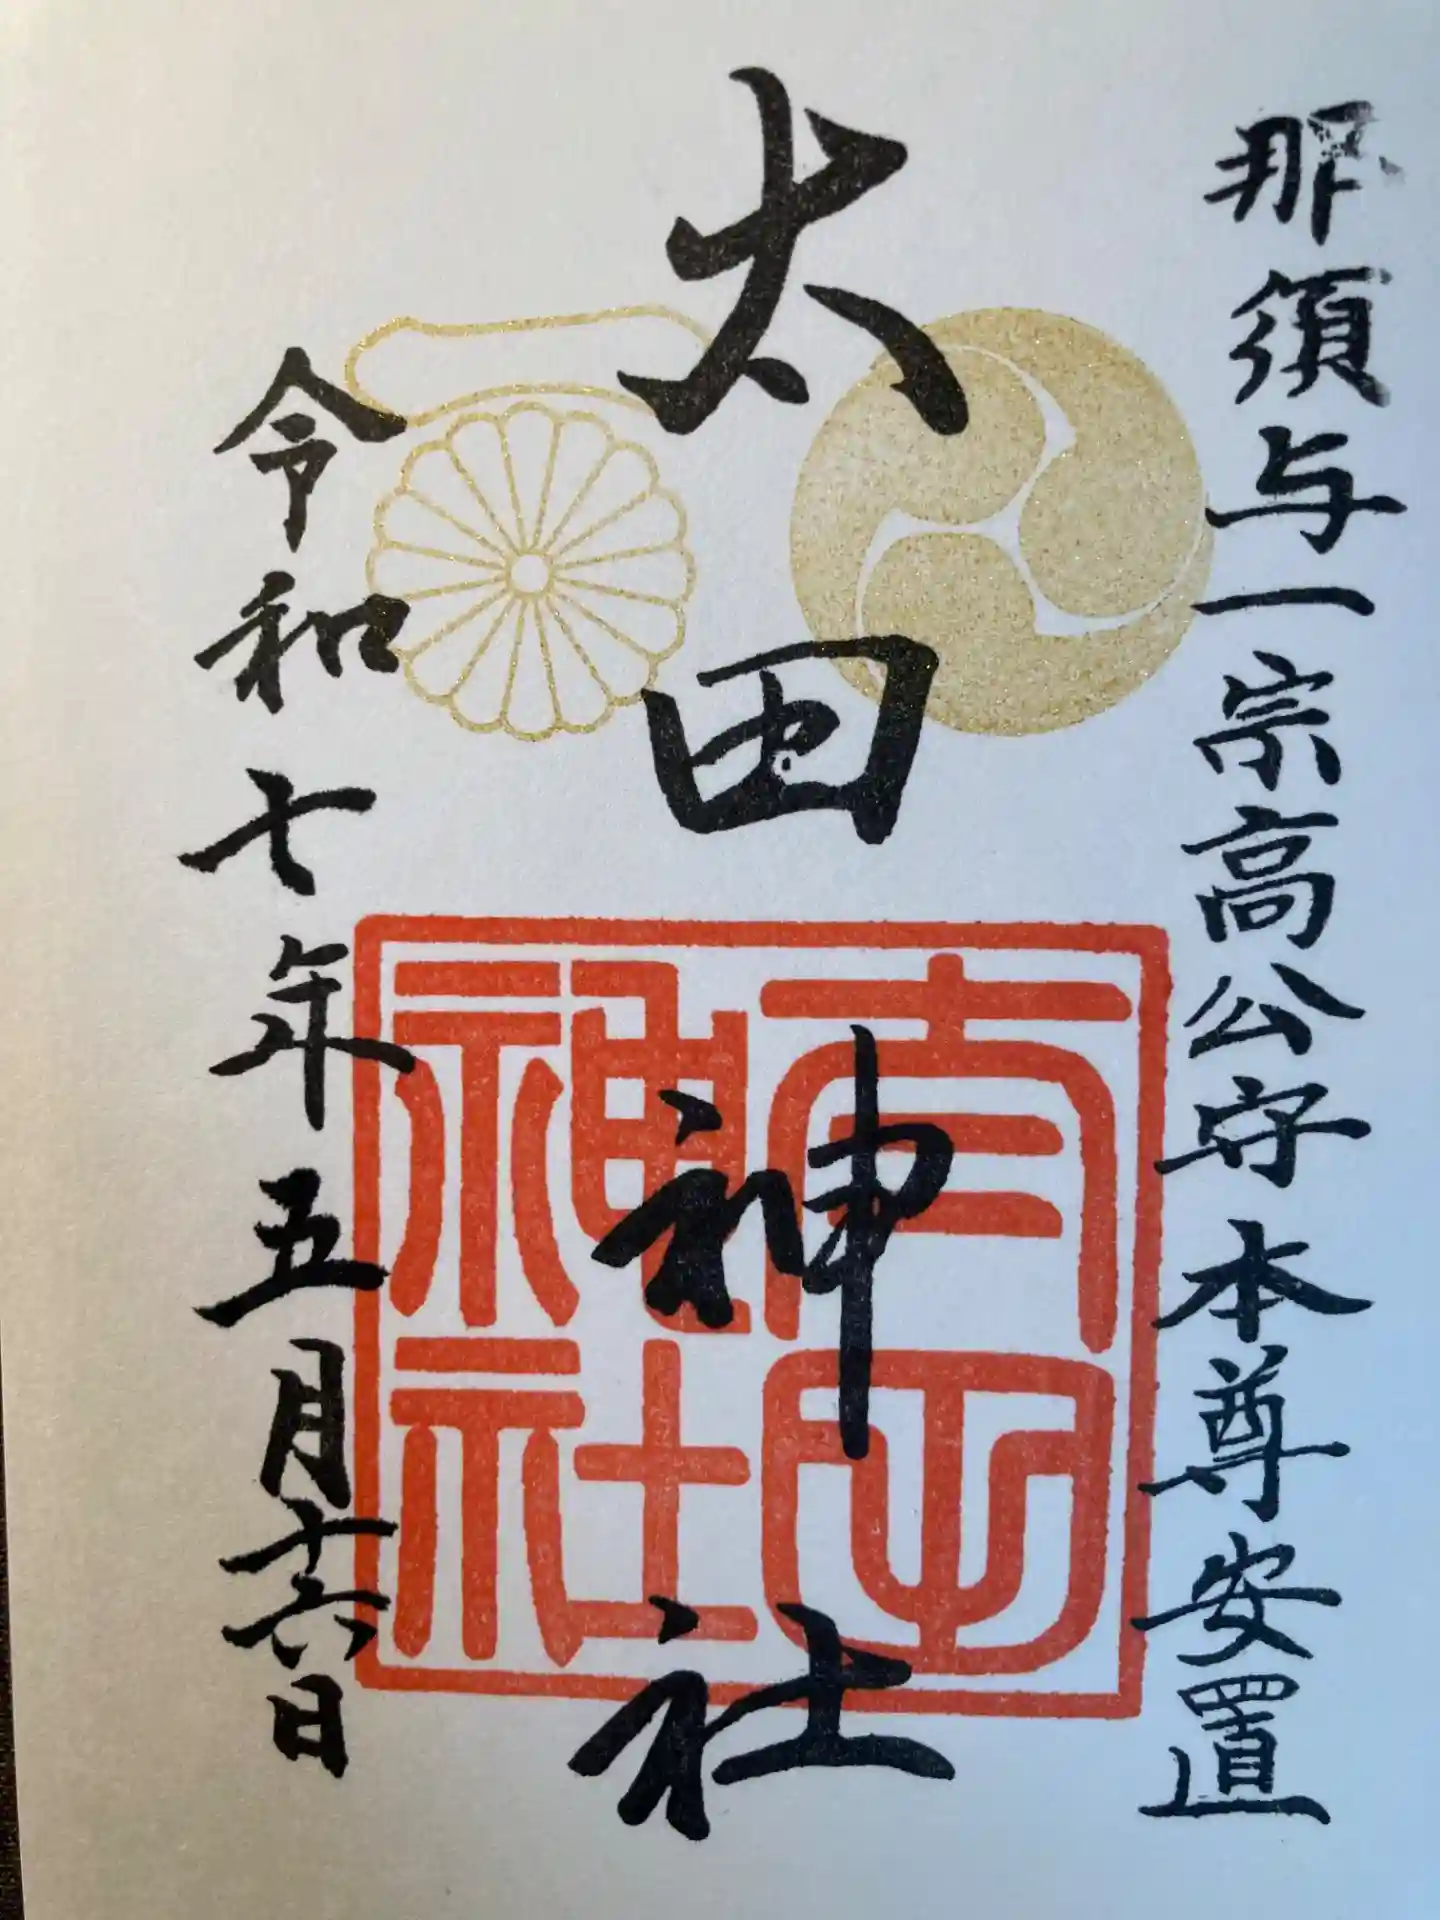 那須与一宗高公守本尊安置
太田神社
令和七年五月十六日
太田
神社